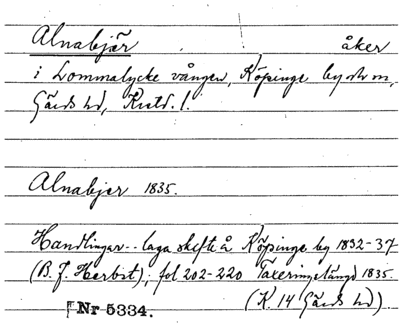 Alnabjär åker
i Lommalycke vången, Köpinge by och sn,
Gärds hd, Kristd. l.
Alnabjer 1835.
Handlingar - - laga skifte å Köpinge by 1832-37
(B. J. Herbst); fol 202-220 Taxeringslängd 1835
(K. 14 Gärds hd)
Nr 5334.